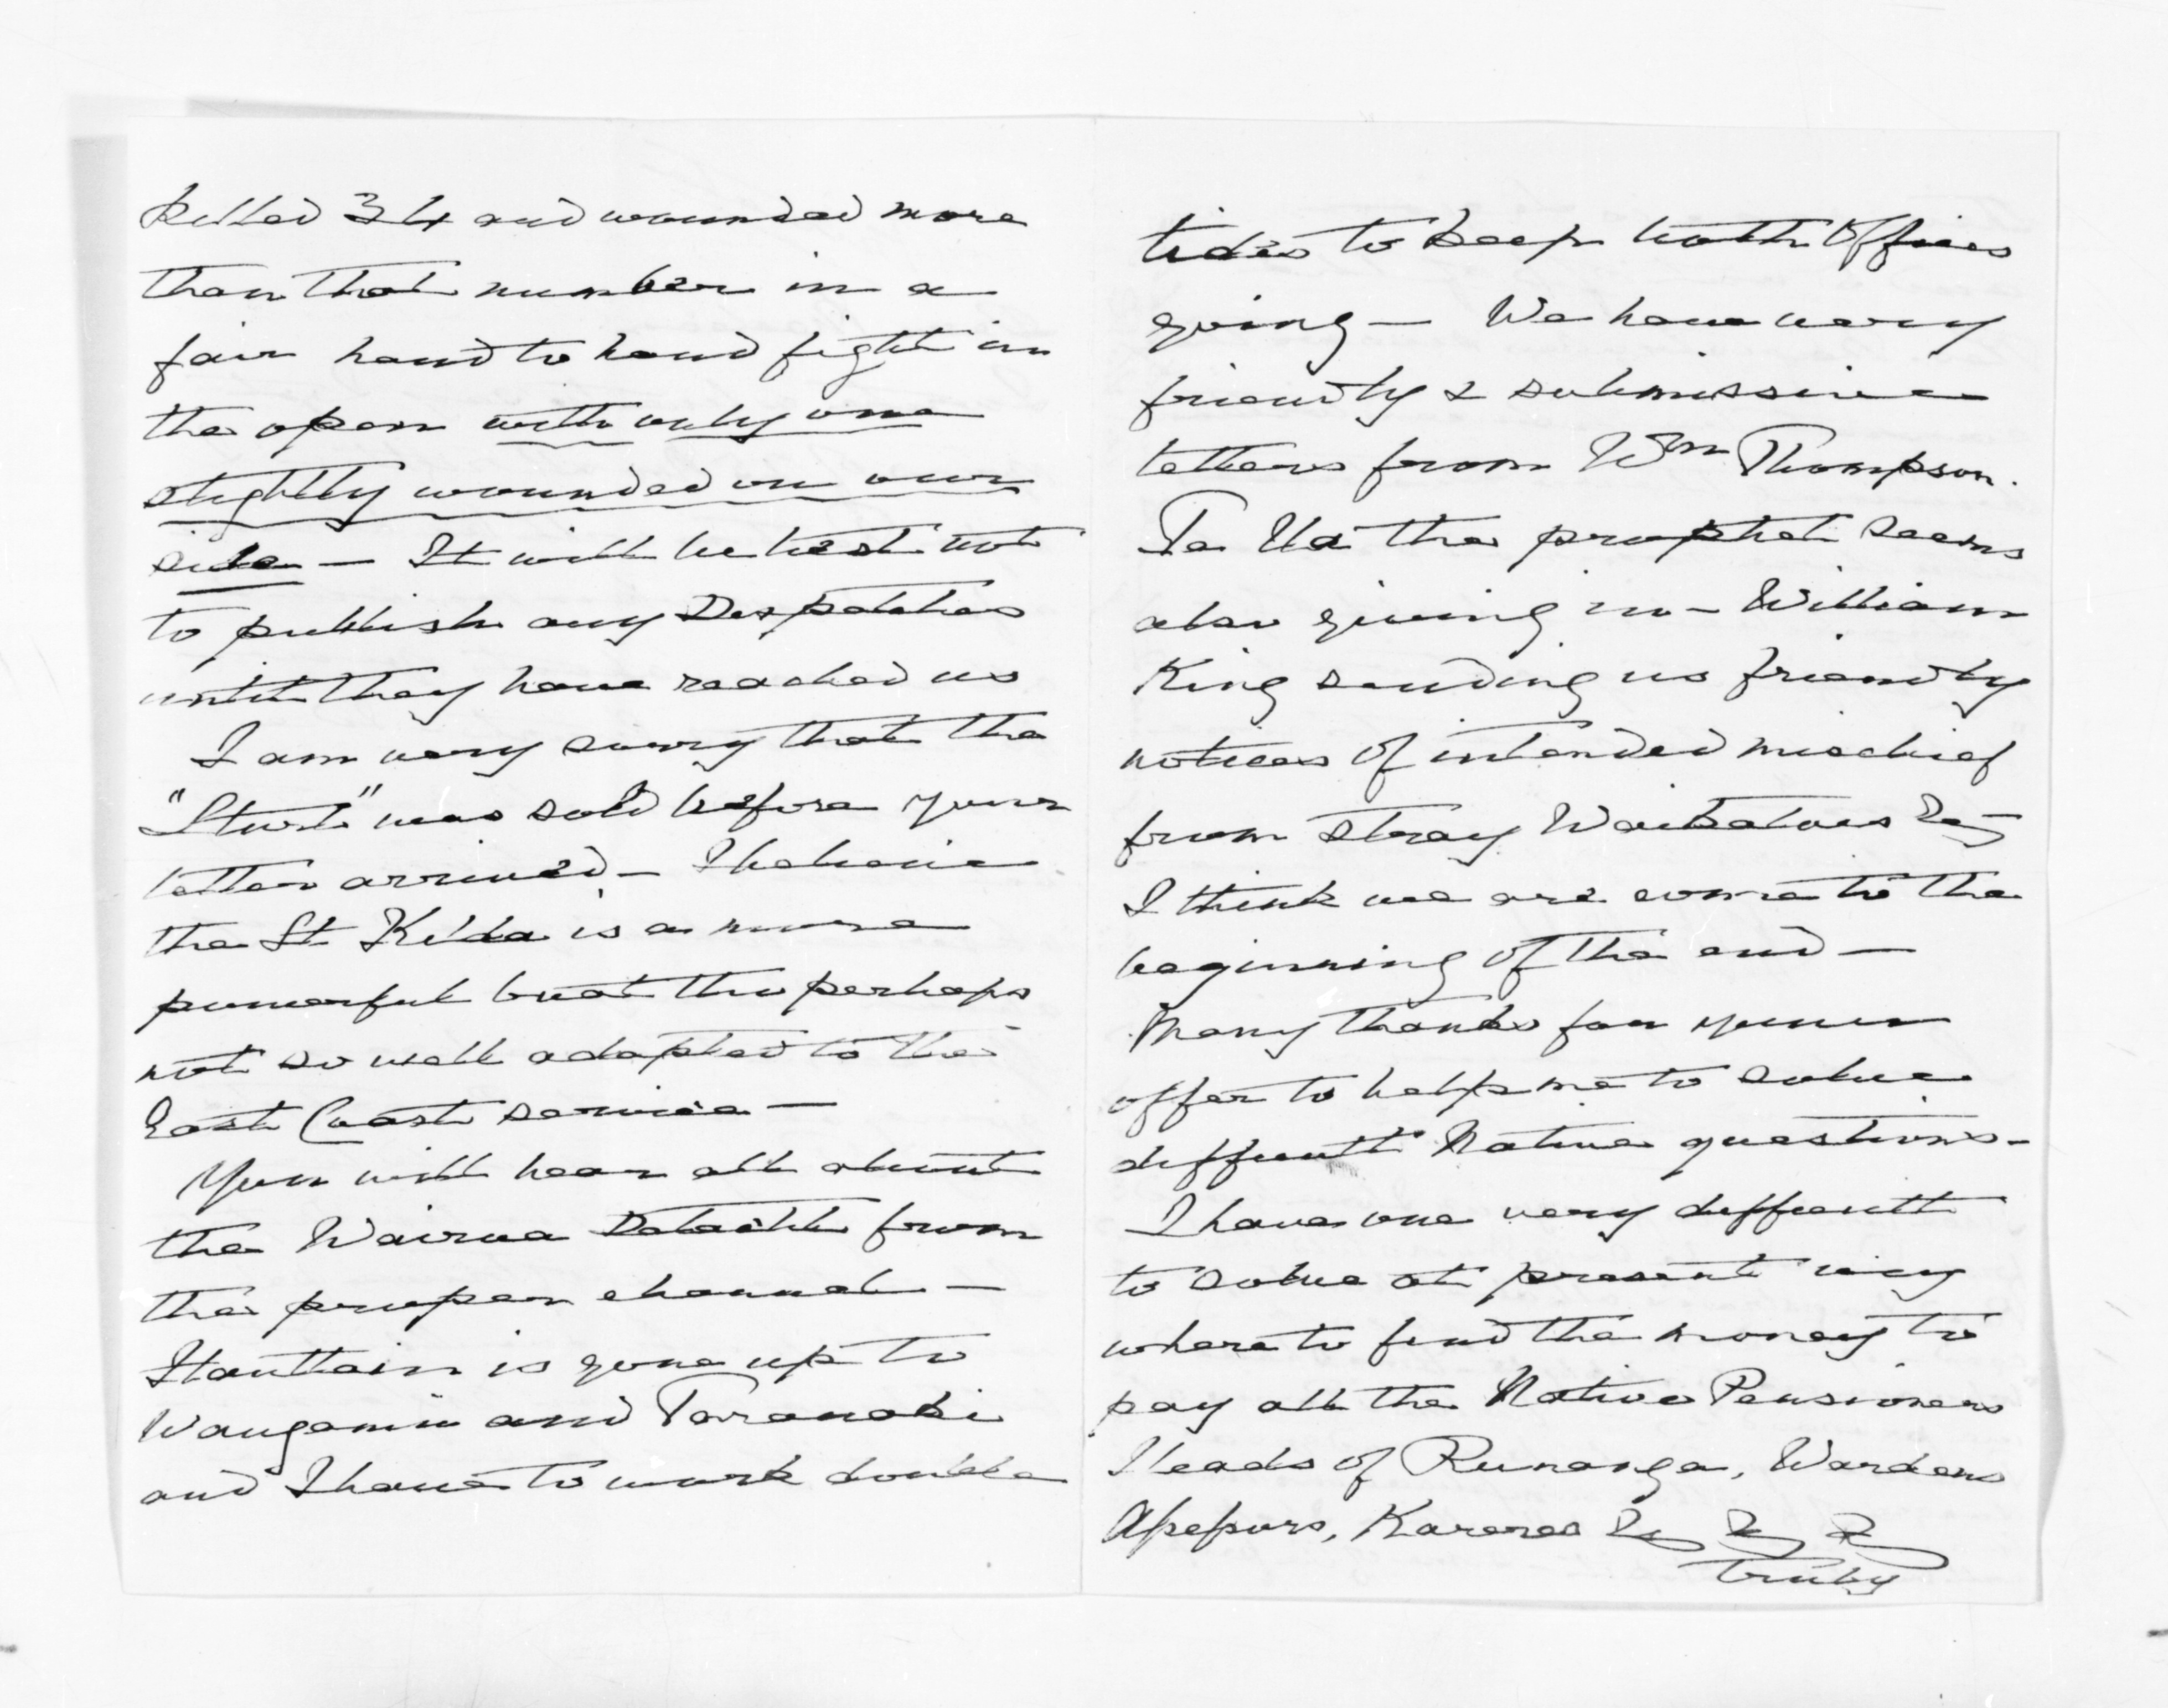 killed 34 and wounded more
than that number in a
fair hand to hand fight in
the open with only one
slightly wounded on our
side — It will be best not
to publish any Despatches
until they have reached us
I am very sorry that the
"Sturt" was sold before your
letter arrived — I believe
the St Kilda is a more
powerful boat tho perhaps
not so well adapted to the
East Coast service —
You will hear all about
the Wairoa from
the proper channel —
Haultain is gone up to
Wanganui and Taranaki
and I have to work double
tides to keep both Offices
going — We have very
friendly & submissive
letters from Wm Thompson.
Te Ua the prophet seems
also giving in — William
King sending us friendly
notices of intended mischief
from stray Waikatoes &c
I think we are come to the
beginning of the end —
Many thanks for your
offer to help me to solve
difficult Native questions —
I have one very difficult
to solve at present viz
where to find the money to
pay all the Native Pensioners
Heads of Runanga, Wardens
Assessors, Kareres &c &c &c
Truly